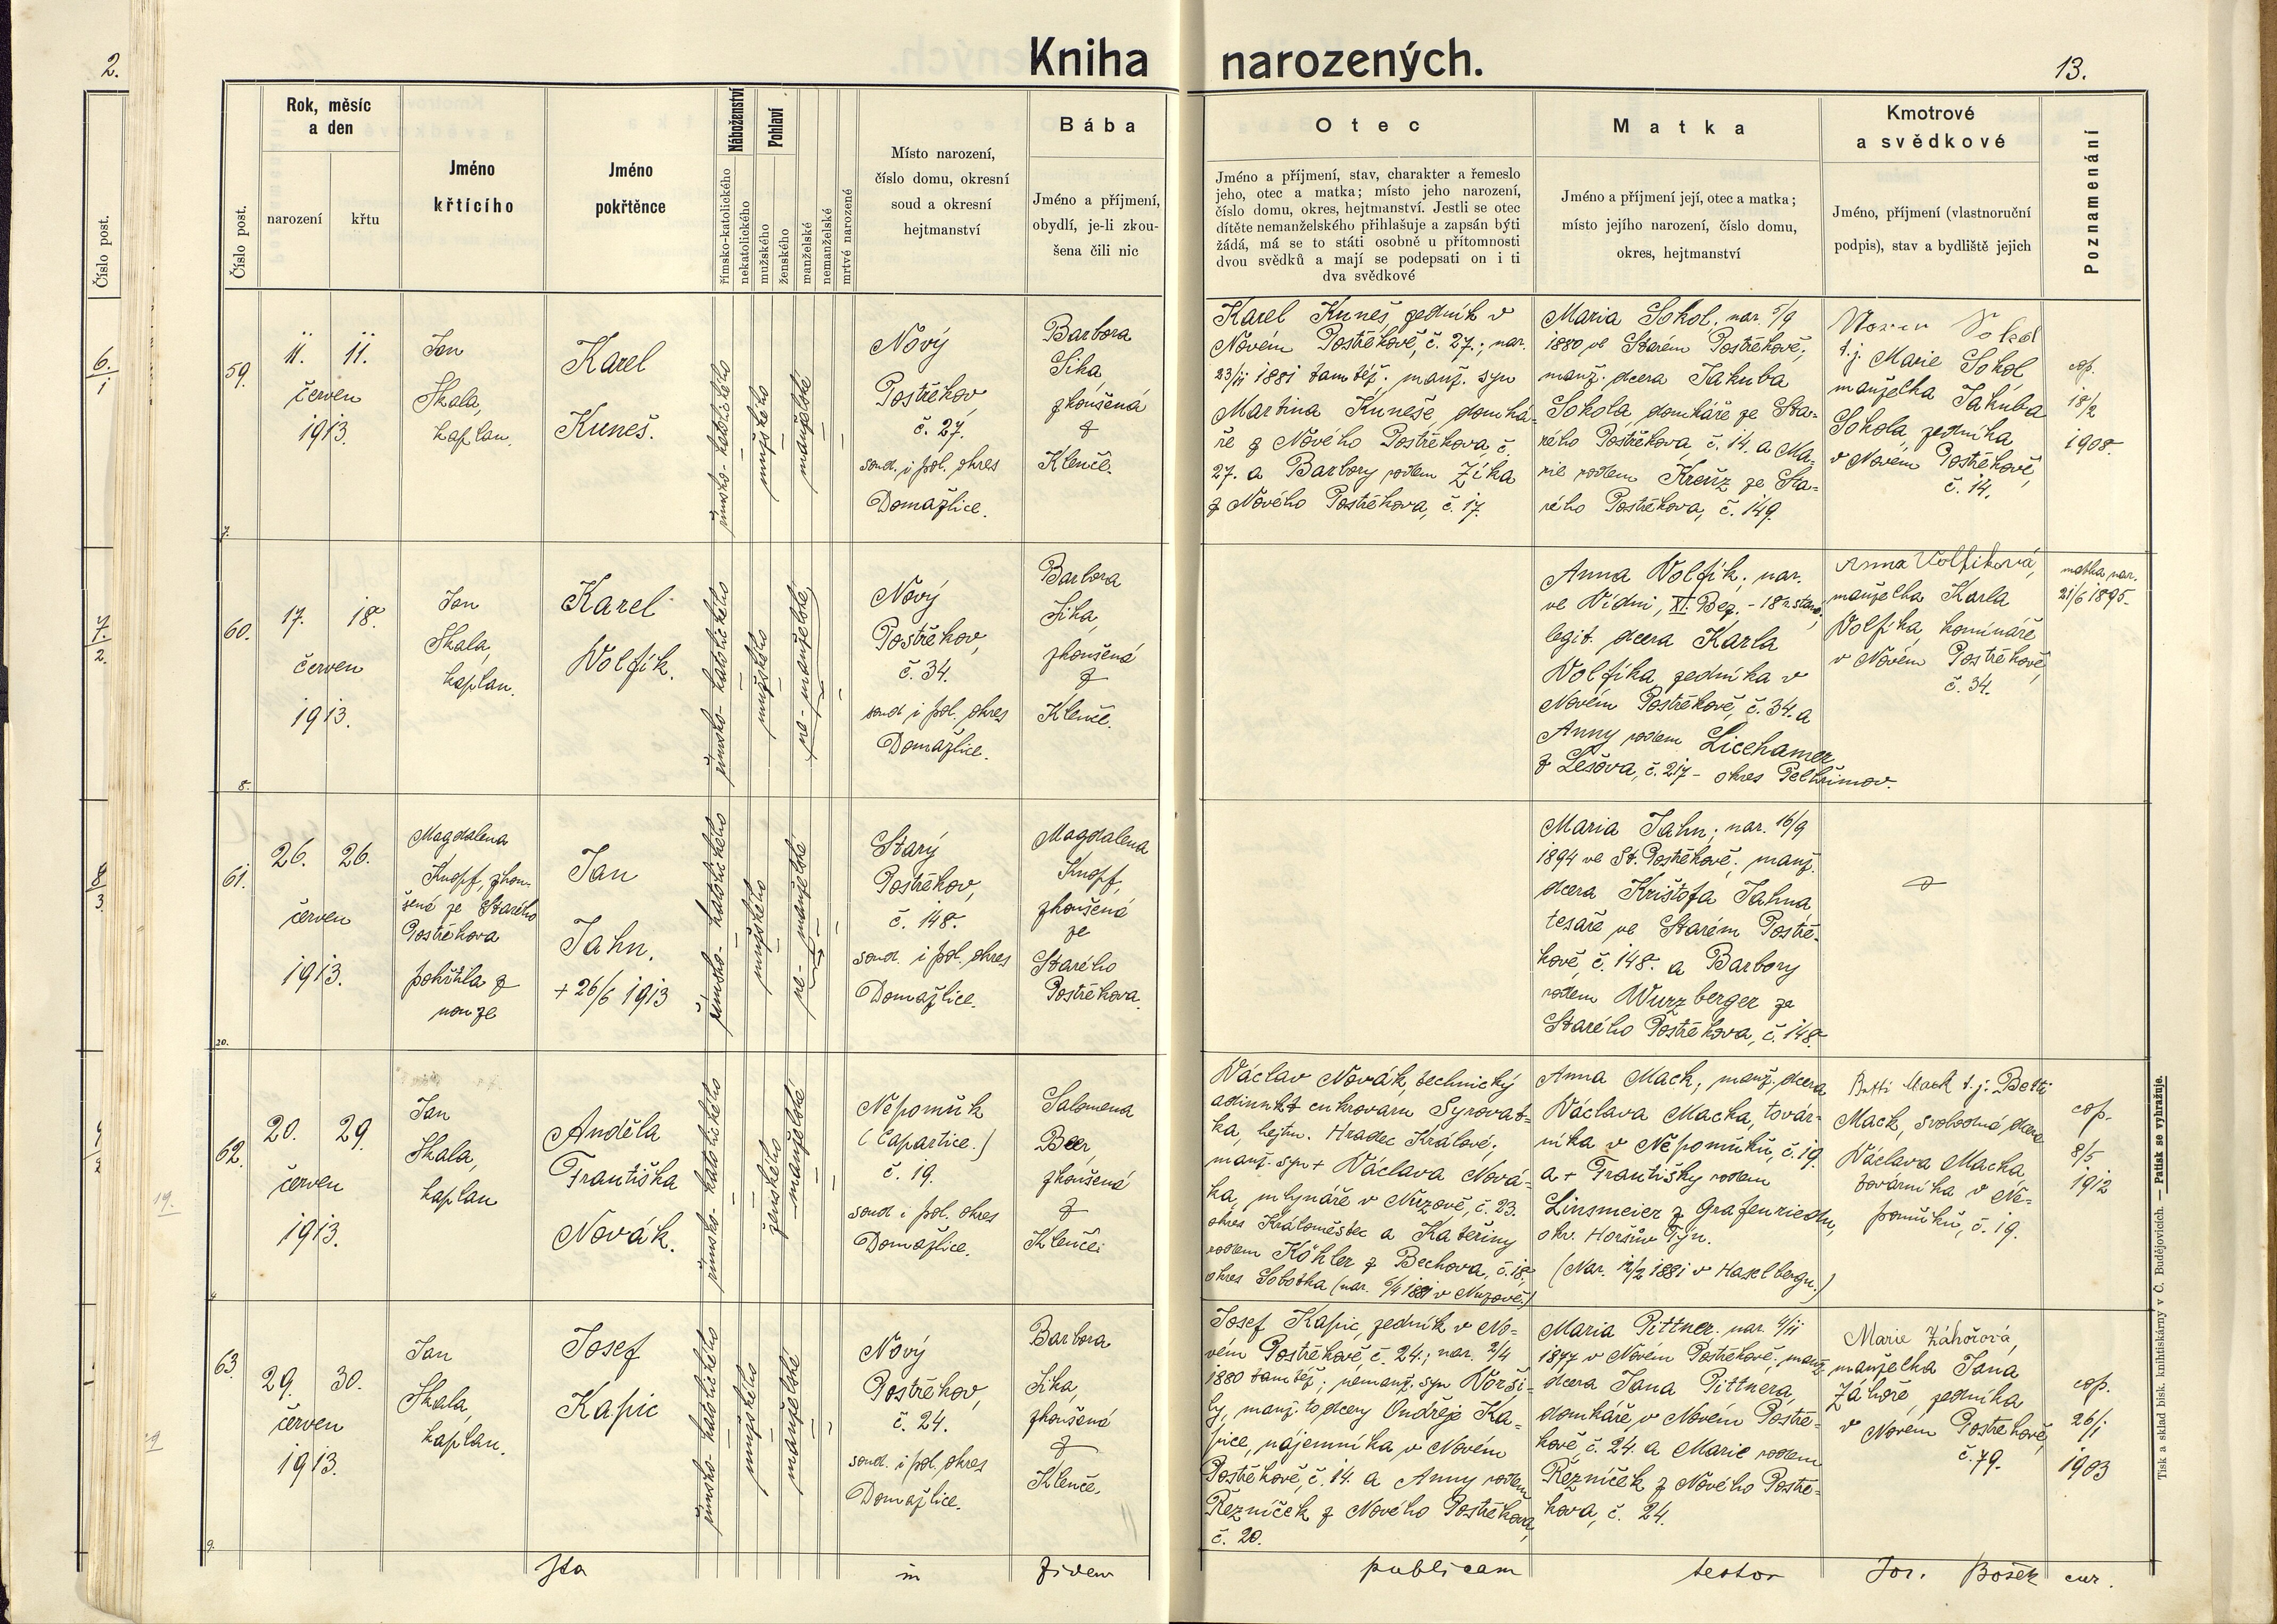 2.
Číslo post.
6/1
7/2.
8/3
9/2
19.
Kniha narozených.
13.
Číslo post.
Rok, měsíc
a den
narození
křtu
Jméno
křtícího
Jméno
pokřtěnce
Náboženství
římsko-katolického
nekatolického
Pohlaví
mužského
ženského
manželské
nemanželské
mrtvé narozené
Místo narození,
číslo domu, okresní
soud a okresní
hejtmanství
Bába
Jméno a příjmení,
obydlí, je-li zkou-
šena čili nic
Otec
Jméno a příjmení, stav, charakter a řemeslo
jeho, otec a matka; místo jeho narození,
číslo domu, okres, hejtmanství. Jestli se otec
dítěte nemanželského přihlašuje a zapsán býti
žádá, má se to státi osobně u přítomnosti
dvou svědků a mají se podepsati on i ti
dva svědkové
Matka
Jméno a příjmení její, otec a matka;
místo jejího narození, číslo domu,
okres, hejtmanství
Kmotrové
a svědkové
Jméno, příjmení (vlastnoruční
podpis), stav a bydliště jejich
Poznamenání
59.
11. 11.
červen
1913.
Jan
Skala,
kaplan.
Karel
Kuneš.
římsko-katolického
mužského
manželské
Nový
Postřekov
č. 27.
soud. i pol. okres
Domažlice.
Barbora
Sika
zkoušená
z
Klenčí.
Karel Kuneš, zedník v
Novém Postřekově, č. 27.; nar.
23/11 1881 tamtéž; manž. syn
Martina Kuneše, domká-
ře z Nového Postřekova, č.
27. a Barbory rodem Zíka
z Nového Postřekova, č. 17.
Maria Sokol; nar. 5/9
1880 ve Starém Postřekově;
manž. dcera Jakuba
Sokola, domkáře ze Sta-
rého Postřekova, č. 14. a Ma-
rie rodem Kreuz ze Sta-
rého Postřekova, č. 149.
Sokol
t.j. Marie Sokol
manželka Jakuba
Sokola, zedníka
v Novém Postřekově,
č. 14.
cop.
18/2
1908.
7.
60.
17. 18.
červen
1913.
Jan
Skala,
kaplan.
Karel
Wolfík.
římsko-katolického
mužského
ne-manželské
Nový
Postřekov,
č. 34.
soud i pol. okres
Domažlice.
Barbora
Sika,
zkoušená
z
Klenčí.
Anna Wolfík; nar.
ve Vídni, XI. Bez.
legit. dcera Karla
Wolfíka, zedníka v
Novém Postřekově, č. 34. a
Anny rodem Licehamer
z Lešova, č. 217 - okres Pelhřimov.
Anna Volfiková,
manželka Karla
Wolfíka, komináře
v Novém Postřekově,
č. 34.
matka nar.
21/6 1895.
8.
61.
26. 26.
červen
1913.
Magdalena
Knopf, zkou-
šená ze Starého
Postřekova
pokřtila z
nouze
Jan
Jahn.
+ 26/6 1913
římsko-katolického
mužského
ne-manželské
Starý
Postřekov,
č. 148.
soud. i pol. okres
Domažlice.
Magdalena
Knopf,
zkoušená
ze
Starého
Postřekova.
Maria Jahn; nar. 16/9
1894 ve St. Postřekově; manž.
dcera Krištofa Jahna
tesaře ve Starém Postře-
kově, č. 148. a Barbory
rodem Wurzberger ze
Starého Postřekova, č. 148.
20.
62.
20. 29.
červen
1913.
Jan
Skala,
kaplan
Anděla
Františka
Novák.
římsko-katolického
ženského
manželské
Nepomuk
(Capartice.)
č. 19.
soud i pol. okres
Domažlice.
Salomena
Beer,
zkoušená
z
Klenčí
Václav Novák, technický
adjunkt cukrovaru Syrovat-
ka, hejtm. Hradec Králové;
manž. syn + Václava Nová-
ka, mlynáře v Nuzově, č. 23.
okres Královéměstec a Kateřiny
rodem Köhler z Bechova, č. 18,
okres Sobotka (nar. 5/4 1881 v Nuzově.)
Anna Mach; manž. dcera
Václava Macha, továr-
níka v Nepomuku, č. 19.
a + Františky rodem
Linsmeier z Grafenriedu,
okr. Horšův Týn.
(Nar. 12/2 1881 v Haselbergu.)
Betti Mach t.j. Betti
Mach, svobodná dcera
Václava Macha,
továrníka v Ne-
pomuku, č. 19.
cop.
8/5
1912
63.
29. 30.
červen
1913.
Jan
Skala,
kaplan.
Josef
Kapic
římsko-katolického
mužského
manželské
Nový
Postřekov,
č. 24.
soud. i pol. okres
Domažlice.
Barbora
Sika,
zkoušená
z
Klenčí.
Josef Kapic, zedník v No-
vém Postřekově, č. 24.; nar. 2/4
1880 tamtéž; nemanž. syn Vorši-
ly, manž. to dcery Ondřeje Ka-
pice, nájemníka v Novém
Postřekově, č. 14. a Anny rodem
Řezníček z Nového Postřekova,
č. 20.
Maria Pittner; nar. 4/11
1877 v Novém Postřekově; manž.
dcera Jana Pittnera,
domkáře v Novém Postře-
kově, č. 24. a Marie rodem
Řezníček z Nového Postře-
kova, č. 24.
Marie Záhořová,
manželka Jana
Záhoře, zedníka
v Novém Postřekově,
č. 79.
cop.
26/1
1903
9.
Ita in fidem publicam testor Jos. Bošek cur.
Tisk a sklad bisk. knihtiskárny v Č. Budějovicích. — Patisk se vyhražuje.